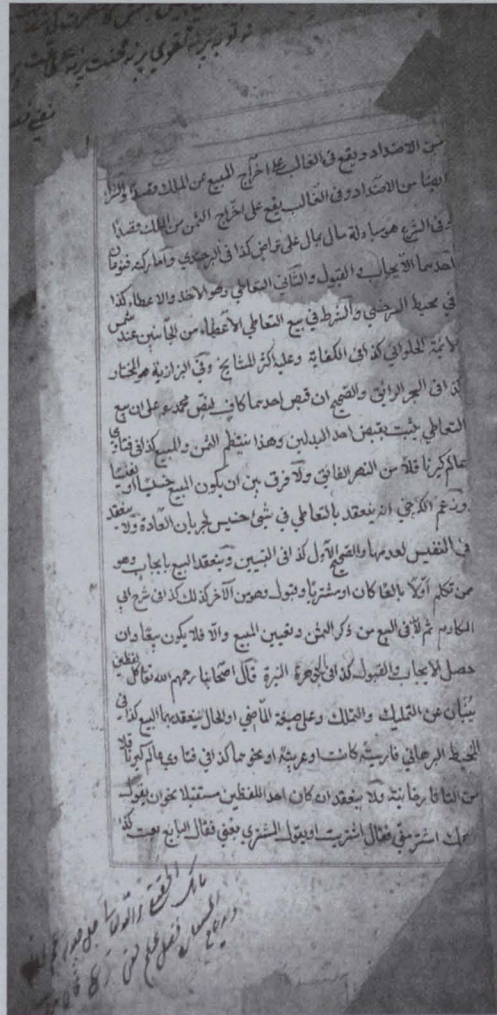 من الاضداد ويقع في الغالب على اخراج المبيع عن الملك قصدا والشرا
ايضا من الاضداد وفي الغالب يقع على اخراج الثمن من الملك قصدا
وفي الشرع هو مبادلة مال بمال على تراض كذا في البرجندي واما ركنه فنوعان
احدهما الايجاب والقبول والثاني التعاطي وهو الاخذ والاعطاء كذا
في محيط السرخسي والشرط في بيع التعاطي الاعطاء من الجانبين عند شمس
الائمة الحلواني كذا في الكفاية وعليه اكثر المشايخ وفي البزازية هو المختار
كذا في البحر الرائق والصحيح ان قبض احدهما كاف لنص محمد على ان بيع
التعاطي يثبت بقبض احد البدلين وهذا ينتظم الثمن والمبيع كذا في فتاوي
عالم كيرنا قلا من النهر الفائق ولا فرق بين ان يكون المبيع خسيسا او نفيسا
وزعم الكرخي انه ينعقد بالتعاطي في شئ خسيس لجريان العادة ولا ينعقد
في النفيس لعدمها والصحيح الاول كذا في التبيين وينعقد البيع بايجاب وهو
ممن تكلم اولا بائعا كان او مشتريا وقبول وهو من الآخر كذلك كذا في شرح ابي
المكارم ثم لا في البيع من ذكر الثمن وتعيين المبيع والا فلا يكون بيعا وان
حصل الايجاب والقبول كذا في الجوهرة النيرة قال اصحابنا رحمهم الله تعالى كل لفظين
ينبئان عن التمليك والتملك وعلى صيغة الماضي او الحال ينعقد بهما البيع كذا في
المحيط البرهاني فارسية كانت او عربية او نحوهما كذا في فتاوي عالم كيرنا قلا
من التاتارخانية ولا ينعقد ان كان احد اللفظين مستقبلا نحو ان يقول
اشتر مني فقال اشتريت او يقول المشتري بعني فقال البايع بعت كذا